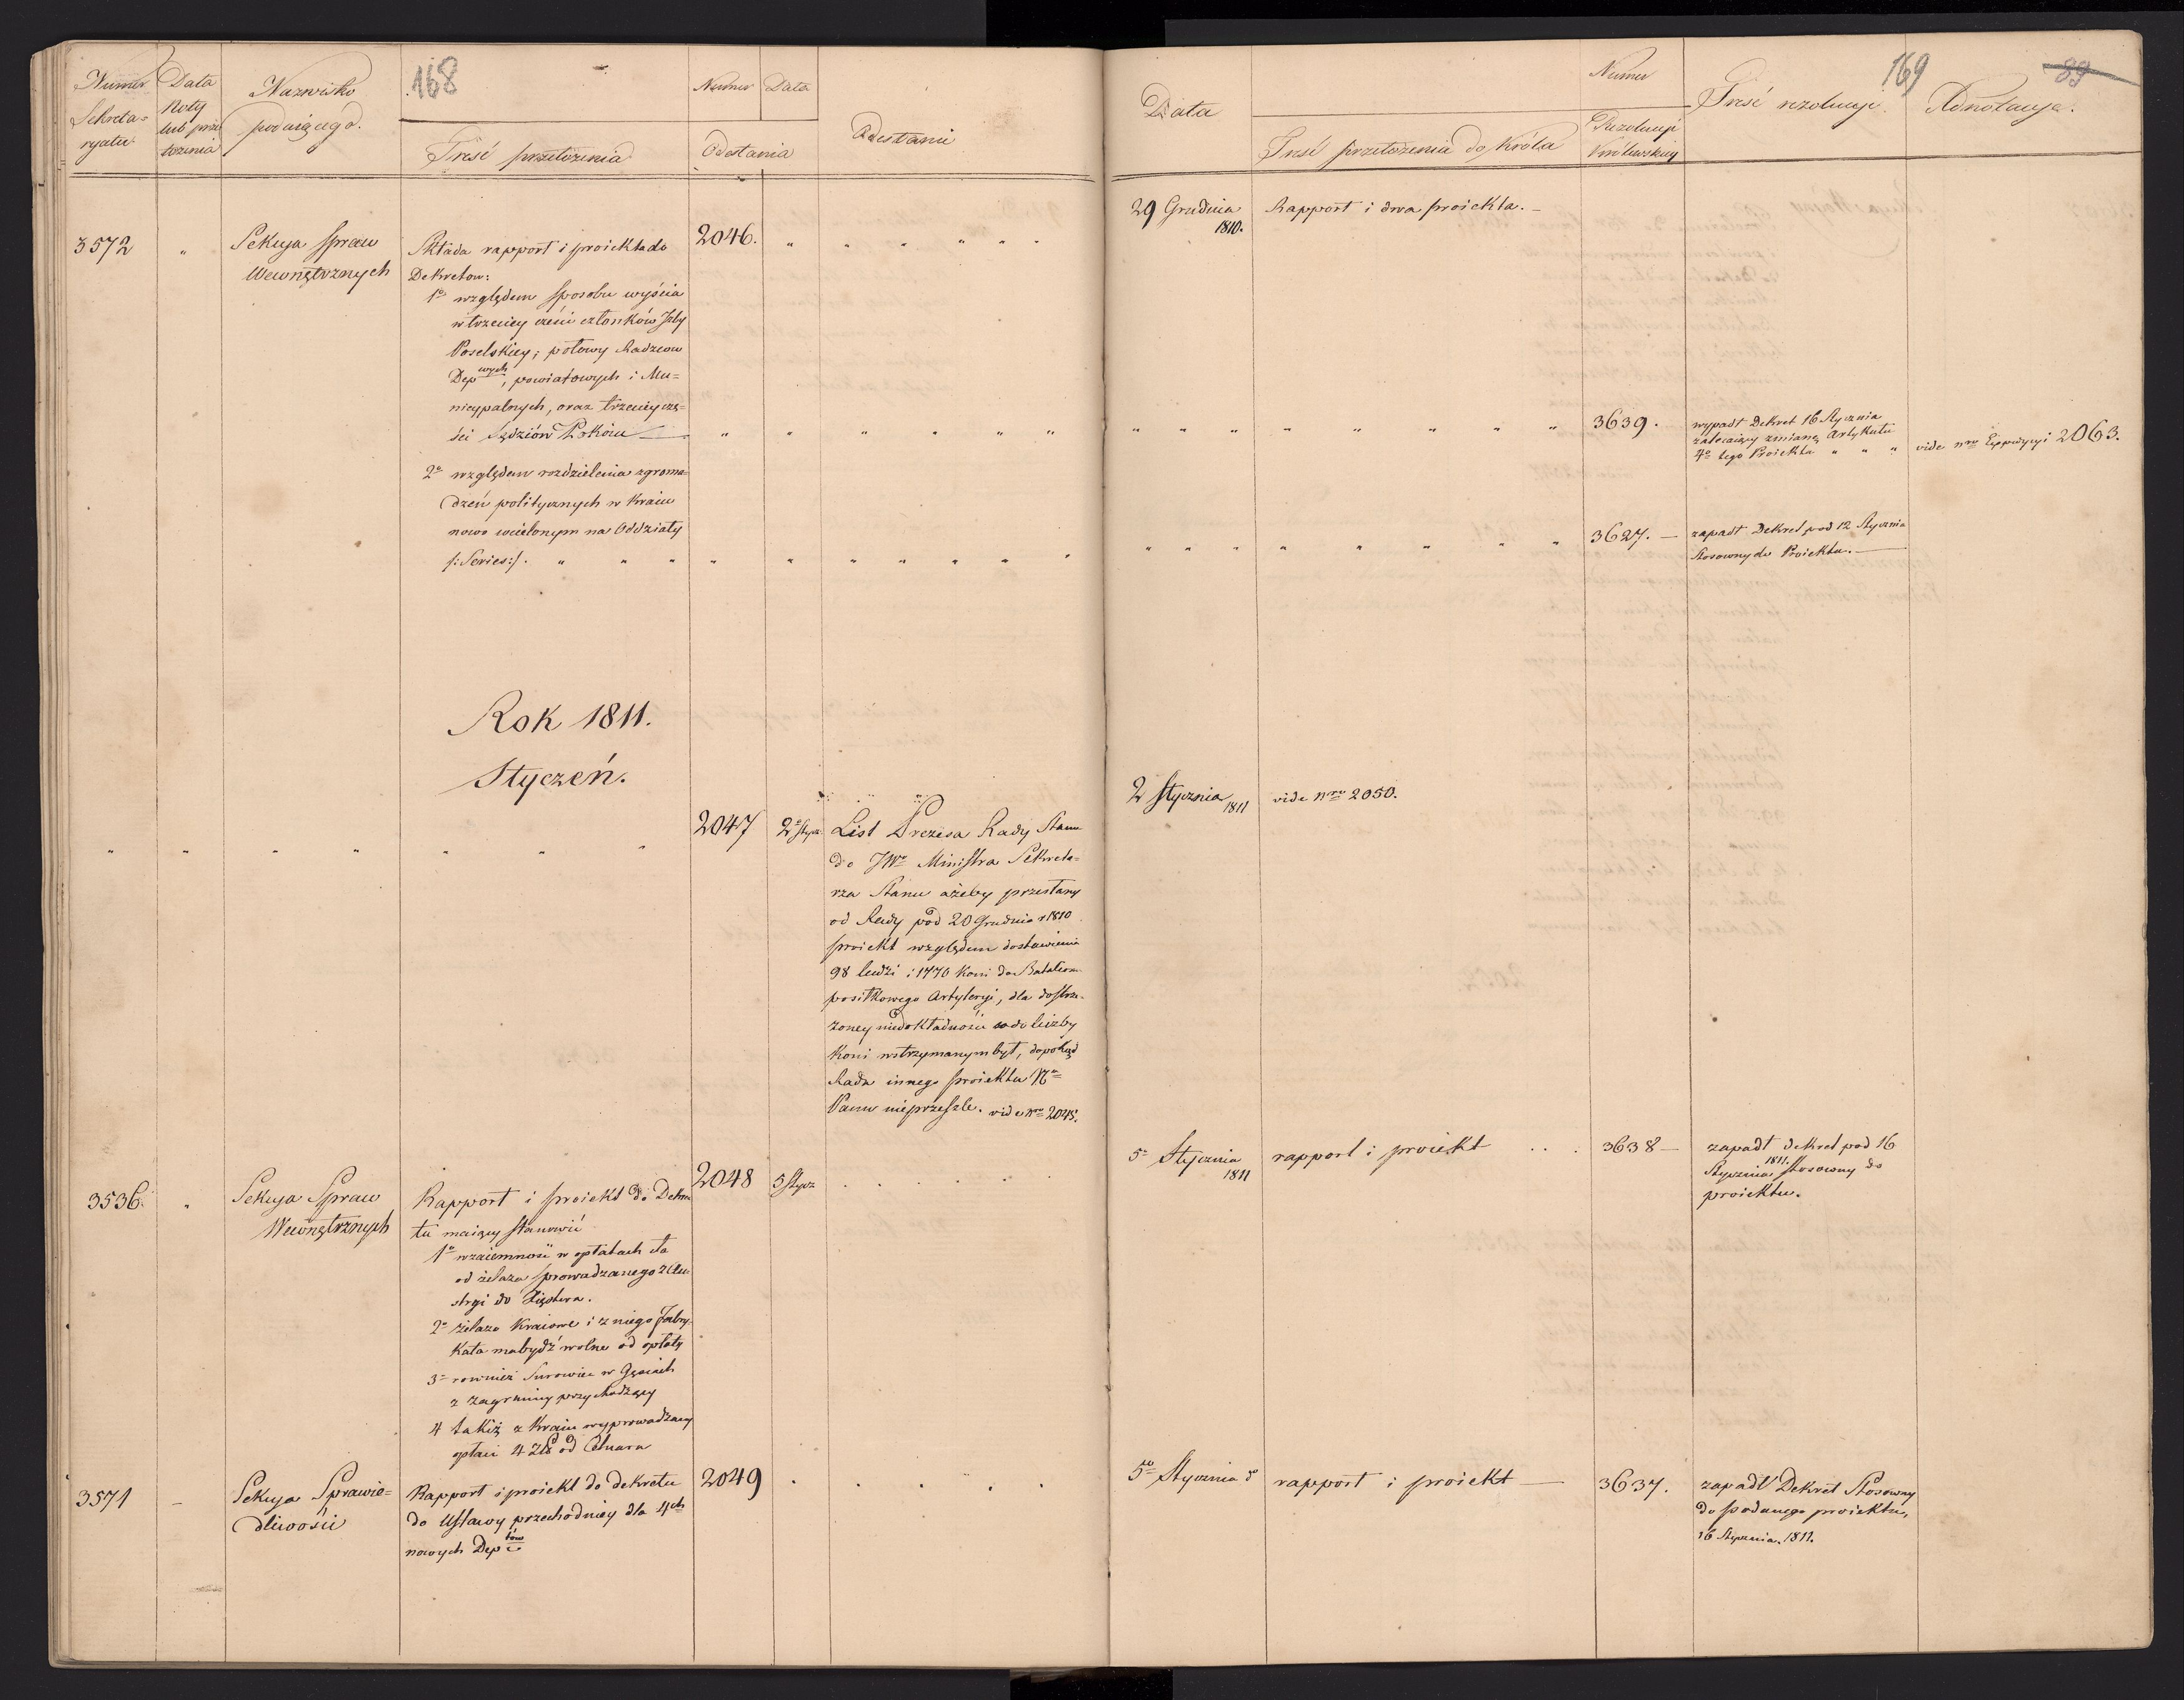 168
Numer Sekreta=
ryatu
Data
Noty
lub prze
łożenia
Nazwisko
podaiącego.
Treść przełożenia
Numer Data
Odesłania
Odesłanie
3572 " Sekcya spraw
Wewnętrznych
Składa rapport i proiekta do
Dekretow:
1o względem sposobu wyiścia
w trzeciey części członków Jzby
Poselskiey, połowy Radzcow
Depwych, powiatowych i Mu=
nicypalnych, oraz trzeciey czę=
ści Sędziów Pokoiu
2o względem rozdzielenia zgroma=
dzeń politycznych w Kraiu
nowo wcielonym na Oddziały
/:Series:/. " " "
2046. " " " " " "
Rok 1811.
Styczeń.
2047 2o Stycz:
List Prezesa Rady Stanu
do JWo Ministra Sekreta=
rza Stanu ażeby przesłany
od Rady pod 20 Grudnia r 1810
proiekt względem dostawienia
98 ludzi i 1770 Koni do Batalion
posiłkowego Artyleryi, dla dostrze=
żoney niedokładności co do liczby
Koni wstrzymanym był, dopokąd
Rada innego proiektu No
Panu nieprzeszle. vide nro 2045.
3536. " Sekcya Spraw
Wewnętrznych
Rapport i proiekt do Dekre
tu maiący stanowić
1o wzaiemność w opłatach cła
od żelaza sprowadzanego z Au=
stryi do Xięstwa.
2o żelazo Kraiowe i z niego fabry=
kata ma bydź wolne od opłaty
3o rownież Surowiec w Gęsiach
z zagranicy przychodzący
4 takiż z Kraiu wyprowadzany
opłaci 4 Zło od Cetnara
2048 5 Stycz
3571 — Sekcya Sprawie=
dliwości
Rapport i proiekt do dekretu
do Ustawy przechodniey dla 4ch
nowych Deptów
2049
169
89
Data
Treść przełożenia do Króla
Numer
Rezolucyi
Królewskiey
Treść rezolucyi.
Adnotacya.
29 Grudnia
1810.
Rapport i dwa proiekta. —
3639. wypadł Dekret 16 Stycznia
zalecaiący zmianę Artykułu
4o tego Proiekta " " "
vide nro Expedycyi 2063.
3627. — zapadł Dekret pod 12 Stycznia
Stosowny do Proiektu. —
2 Stycznia
1811
vide nro 2050.
5o Stycznia
1811
rapport i proiekt
3638 — zapadł dekret pod 16
Stycznia 1811. stosowny do
proiektu.
5o Stycznia do
rapport i proiekt —
3637. zapadł Dekret Stosowny
do podanego proiektu,
16 Stycznia. 1811.